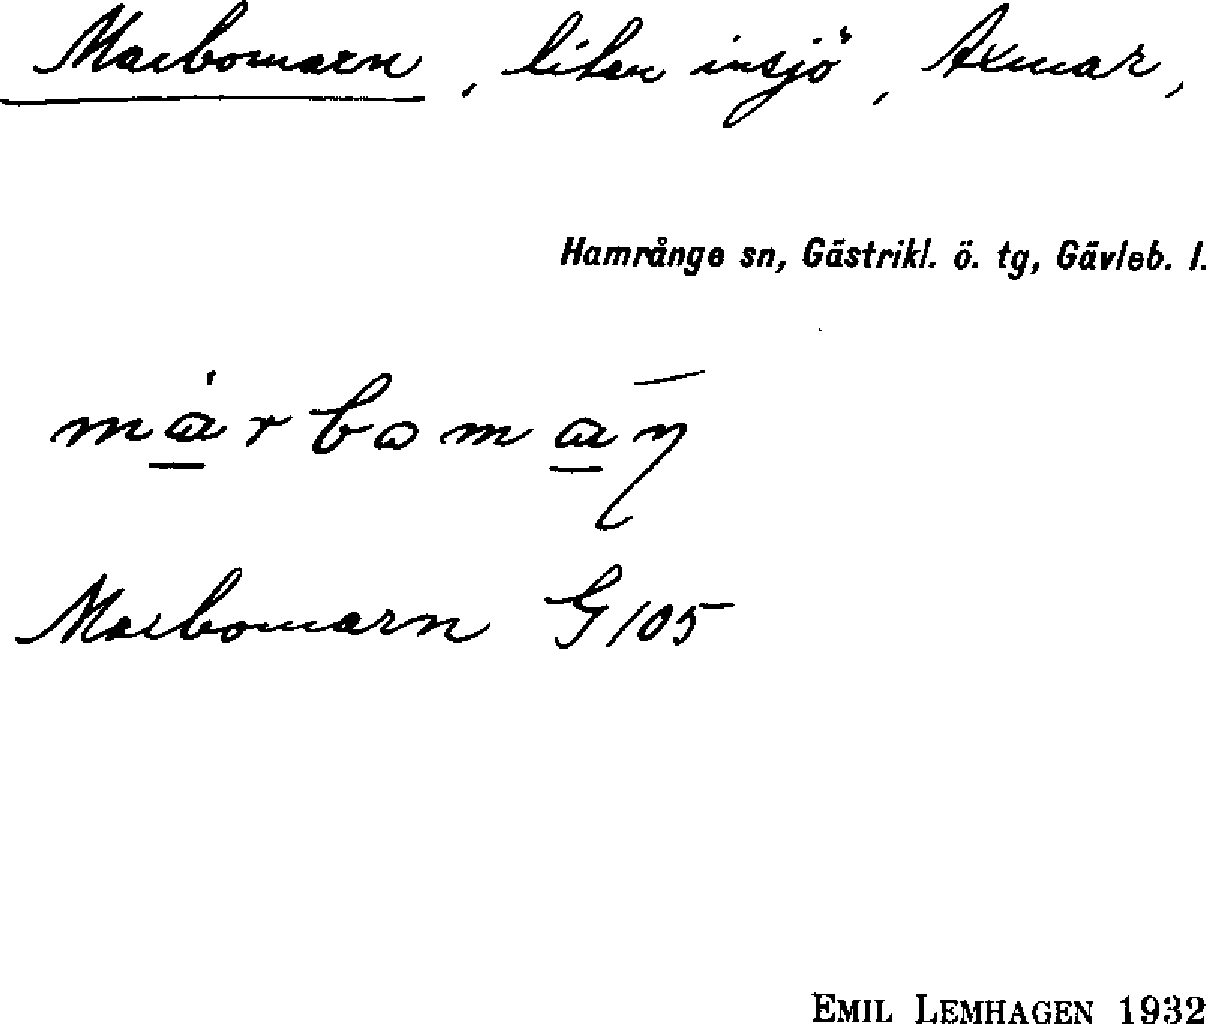 Marbomarn, liten insjö, Axmar,
Hamrånge sn, Gästrikl. ö. tg, Gävleb. l.
ma̲̍rbωma̲ɳ̄
Marbomarn G/105
EMIL LEMHAGEN 1932